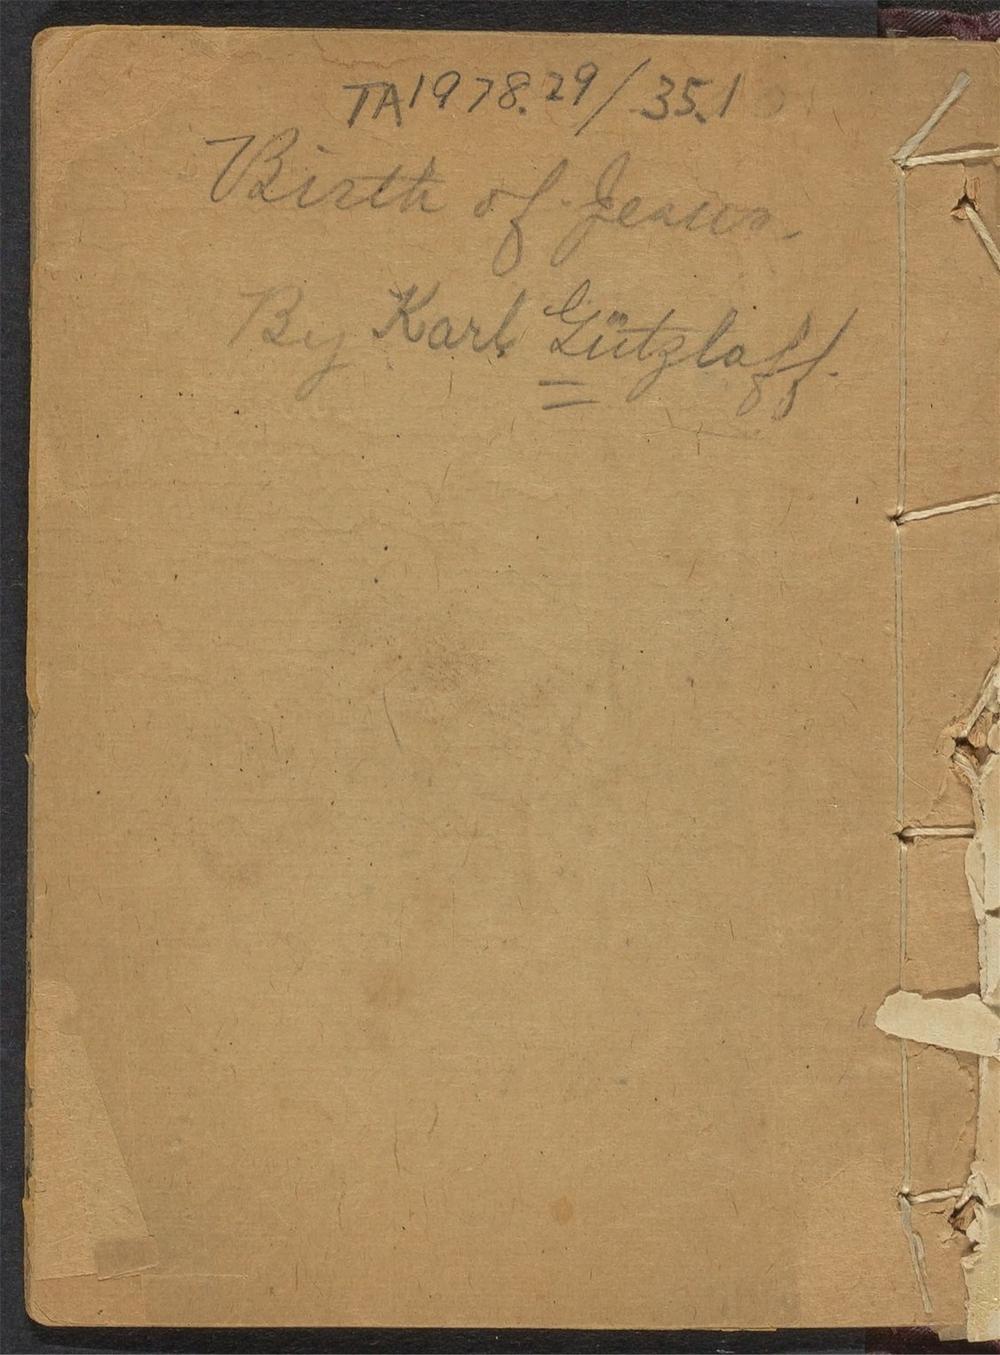 TA1978.29/35.1
Birth of Jesus.
By Karl Gützlaff.